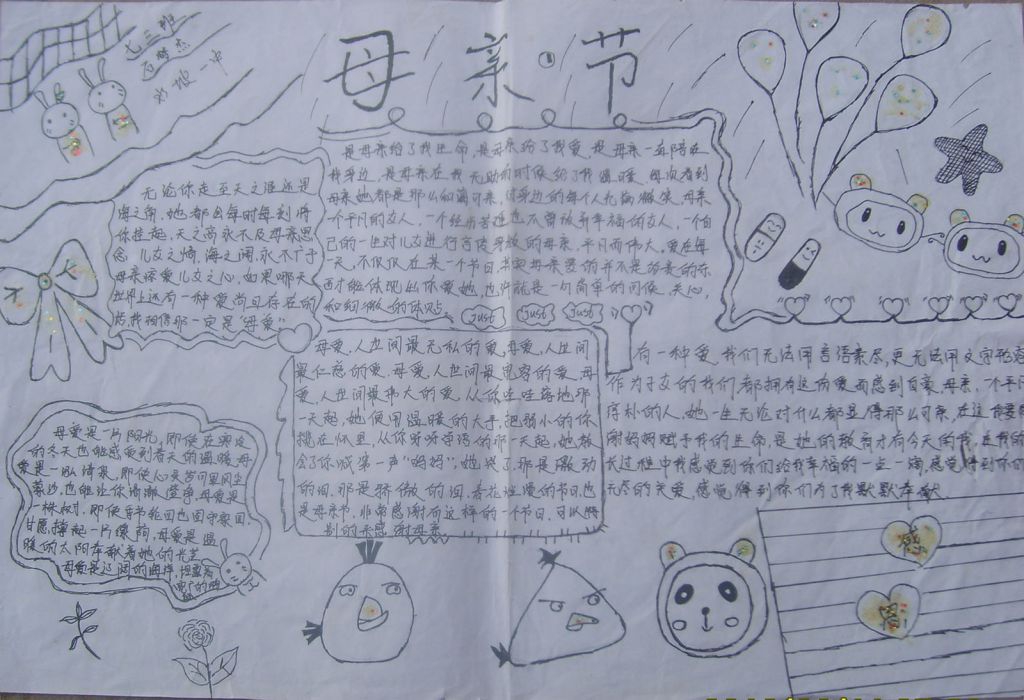 七三班
一中
母亲节
无论你走至天之涯还是
海之角,她都会每时每刻将
你挂起,天之高永不及母亲思
念儿女之情,海之阔,永不广于
母亲疼爱儿女之心,如果哪天
世界上还有一种爱尚且存在的
话,我相信那一定是“母爱”
是母亲给了我生命,是母亲给了我爱,是母亲一直陪在
我身边,是母亲在我无助的时候给了我温暖,每次看到
母亲她都是那么的和蔼可亲,对身边的每个人充满微笑,母亲
一个平凡的女人,一个经历苦难也不曾放弃幸福的女人,一个自
己的一生对儿女进行言传身教的母亲,平凡而伟大,爱在每
一天,不仅仅在某一个节日,其实母亲要的并不是昂贵的东
西才能体现出你爱她,也许就是一句简单的问候,关心,
和细微的体贴。
Just Just Just
母爱,人世间最无私的爱,母爱,人世间
最仁慈的爱,母爱,人世间最宽容的爱,母
爱,人世间最伟大的爱,从你呱呱落地那
一天起,她便用温暖的大手,把弱小的你
揽在怀里,从你呀呀学语的那一天起,她教
会了你喊第一声“妈妈”,她哭了,那是激动
的泪,那是骄傲的泪,春花烂漫的节日,也
是母亲节,非常感谢有这样的一个节日,可以特
别的来感谢母亲
有一种爱,我们无法用言语表尽,更无法用文字形容
作为子女的我们,都拥有这份爱而感到自豪,母亲,一个平凡
淳朴的人,她一生无论对什么都显得那么可亲,在这我要感
谢妈妈赋予我的生命,是她的教育才有今天的我,在我的成
长过程中我感觉到你们给我幸福的一点一滴,感觉得到你们
无尽的关爱,感觉得到你们为了我默默奉献
母爱是一片阳光,即使在寒冷
的冬天也能感觉到春天的温暖,母
爱是一泓清泉,即使心灵岁月里风尘
蒙沙,也能让你清澈澄净,母爱是
一株树,即使春节轮回也固守家园,
甘愿撑起一片绿荫,母爱是温
暖的太阳奉献着她的光芒
母爱是辽阔的海洋,
感
恩